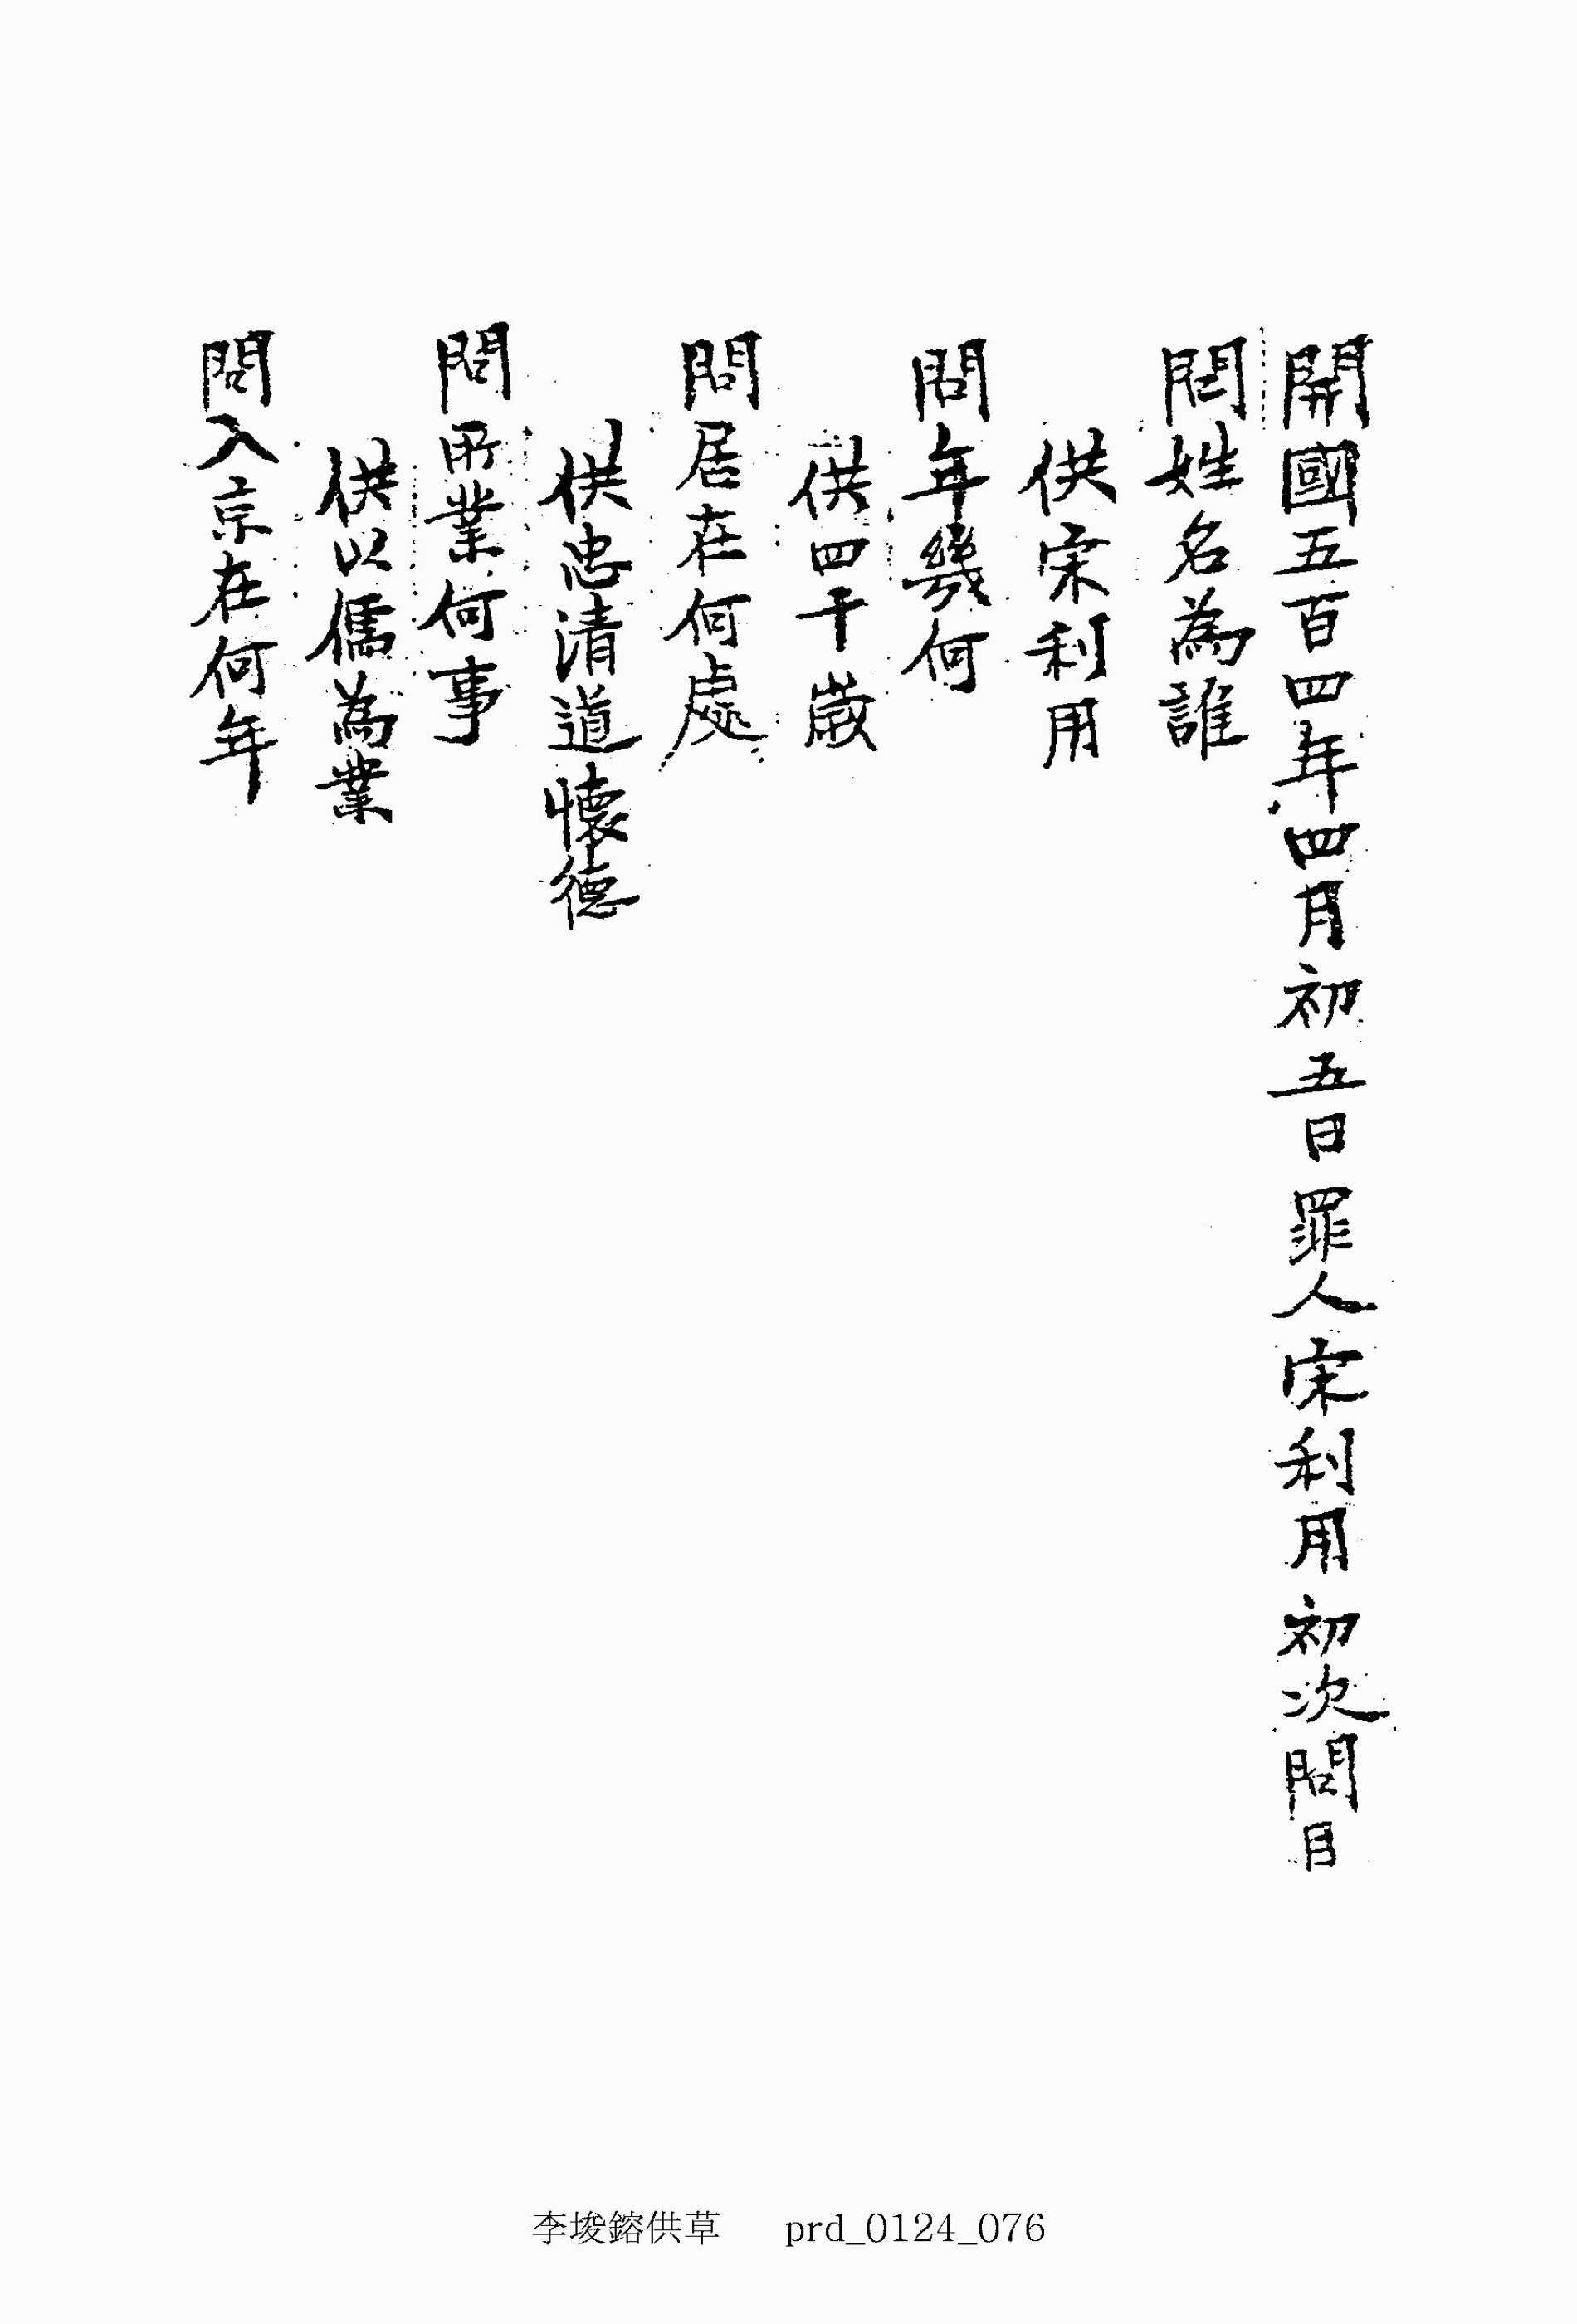 開國五百四年四月初五日罪人宋利用初次問目
問姓名為誰
供宋利用
問年幾何
供四十歲
問居在何處
供忠清道懷德
問所業何事
供以儒為業
問入京在何年
李埈鎔供草 prd_0124_076